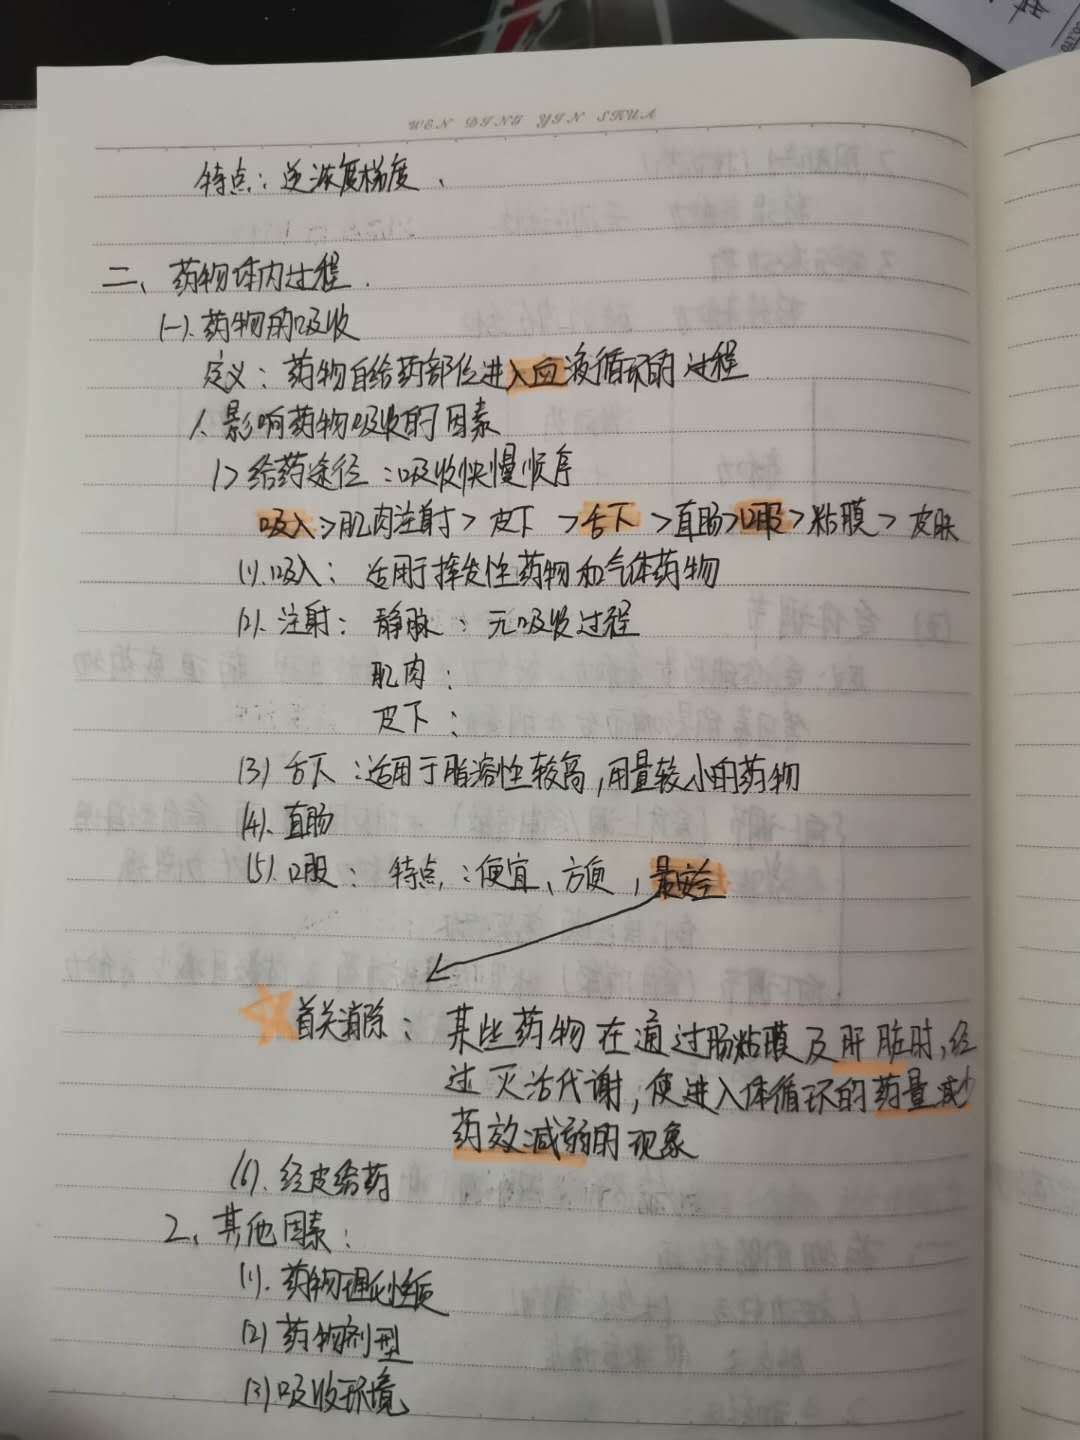 WEN DING YIN SHUA
特点：逆浓度梯度、
二、药物体内过程.
(一).药物的吸收
定义：药物自给药部位进入血液循环的过程
1.影响药物吸收的因素
1>给药途径：吸收快慢顺序
吸入>肌肉注射>皮下>舌下>直肠>口服>粘膜>皮肤
(1).吸入：适用于挥发性药物和气体药物
(2).注射：静脉：无吸收过程
肌肉：
皮下：
(3)舌下：适用于脂溶性较高,用量较小的药物
(4).直肠
(5).口服：特点：便宜、方便,最安全
首关消除：某些药物在通过肠粘膜及肝脏时,经
过灭活代谢,使进入体循环的药量减少
药效减弱的现象
(6).经皮给药
2、其他因素：
(1).药物理化性质
(2)药物剂型
(3).吸收环境